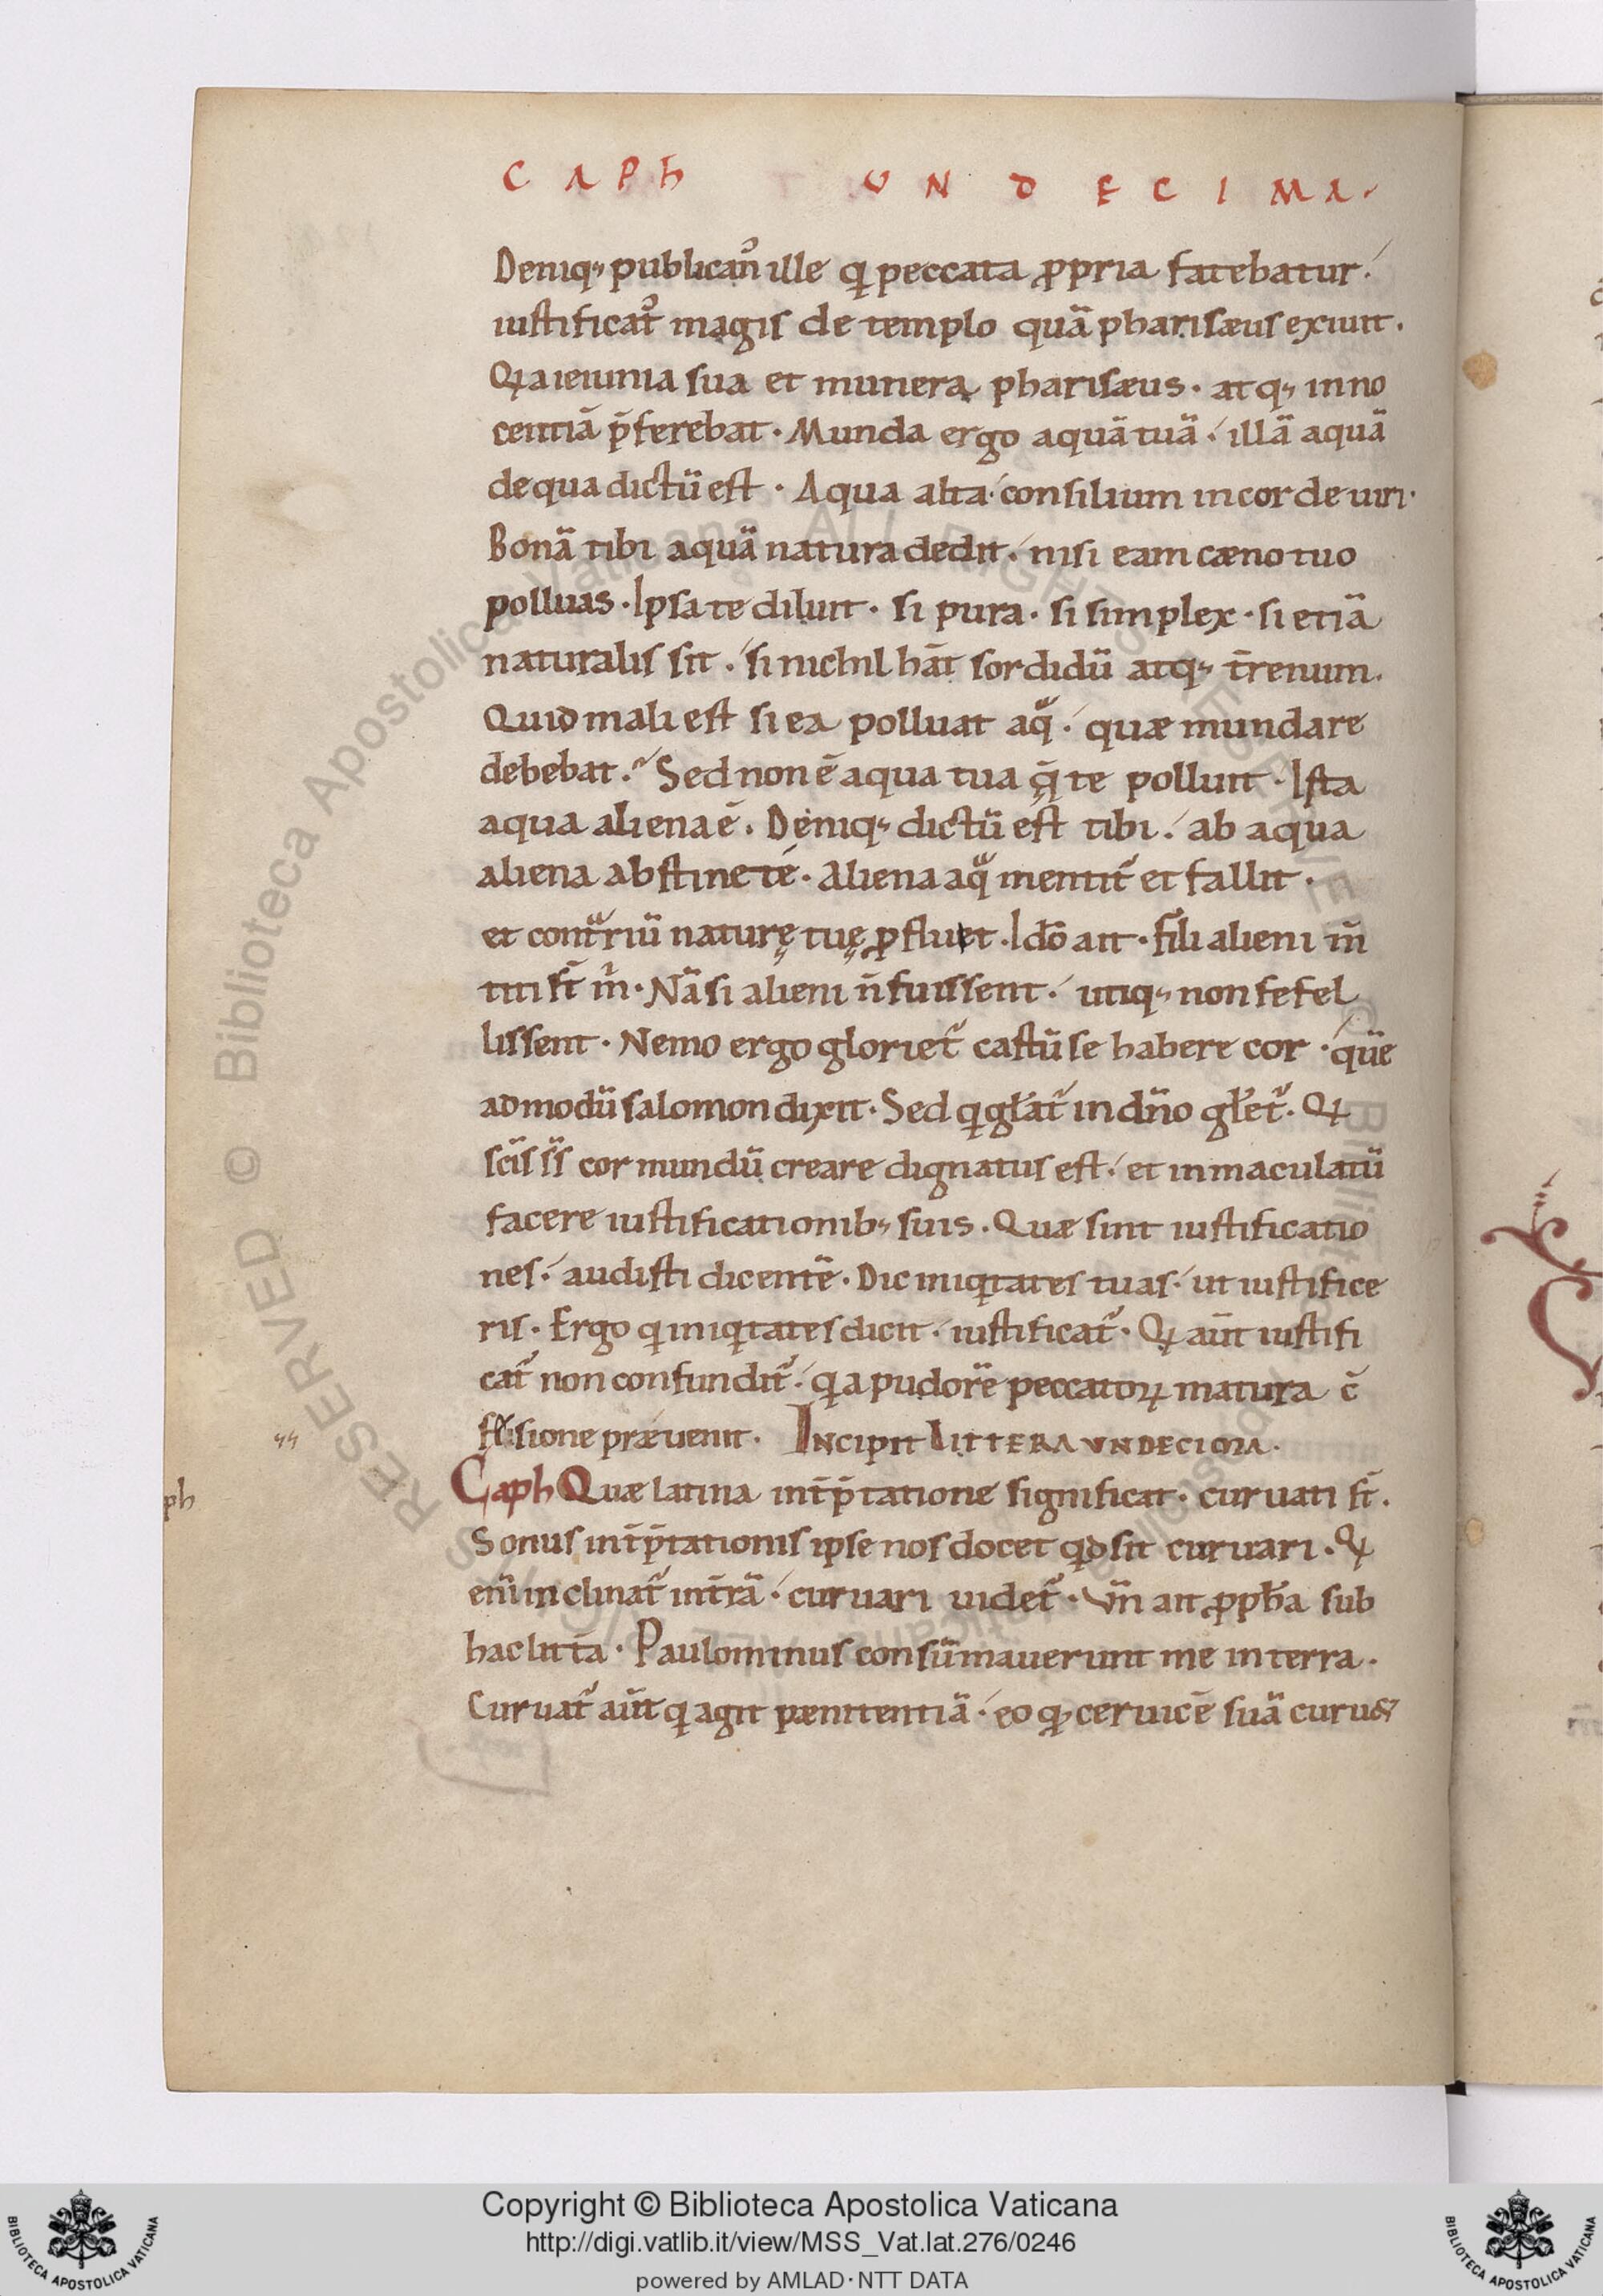 CAPH UNDECIMA.
Deniq; publicanꝰ ille q peccata ꝓpria fatebatur.
iustificatꝰ magis de templo quā pharisæus exiuit.
Qia ieiunia sua et munera pharisæus. atq; inno
centiā p̄ferebat. Munda ergo aquā tuā. illā aquā
de qua dictū est. Aqua alta consilium in corde uiri.
Bonā tibi aquā natura dedit. nisi eam cæno tuo
polluas. Ipsa te diluit. si pura. si simplex. si etiā
naturalis sit. si nichil hāt sordidū atq; t̄renum.
Quid mali est si ea polluat aqͣ. quæ mundare
debebat. Sed non ē aqua tua q̄ te polluit. Ista
aqua aliena ē. Deniq; dictū est tibi. ab aqua
aliena abstine te. Aliena aqͣ mentit᷑ et fallit.
et contͣriū naturę tuę ꝓfluet. Idō ait. fili alieni m̄
titi st̄ m. Nā si alieni n̄ fuissent. utiq; non fefel
lissent. Nemo ergo gloriet᷑ castū se habere cor. quē
admodū salomon dixit. Sed q gl̄at᷑ in dn̄o gl̄et᷑. Qi
scīs sīs cor mundū creare dignatus est. et inmaculatū
facere iustificationib; suis. Quæ sint iustificatio
nes. audisti dicentē. Dic iniqtates tuas. ut iustifice
ris. Ergo q iniqtates dicit. iustificat᷑. Qi aūt iustifi
cat᷑ non confundit᷑. qa pudorē peccatoꝝ matura c̄
fessione præuenit. INCIPIT LITTERA UNDECIMA.
ph
Caph Quæ latina int̄p̄tatione significat. curuati st̄.
Sonus int̄p̄tationis ipse nos docet qd sit curuari. Qi
eni̅ inclinat᷑ in t̄rā. curuari uidet᷑. Vn̄ ait ꝓph̄a sub
hac litt̄a. Paulominus consūmauerunt me in terra.
Curuat᷑ aūt q agit pænitentiā. eo qd ceruicē suā curu&
Copyright © Biblioteca Apostolica Vaticana
http://digi.vatlib.it/view/MSS_Vat.lat.276/0246
powered by AMLAD·NTT DATA
BIBLIOTECA APOSTOLICA VATICANA
BIBLIOTECA APOSTOLICA VATICANA